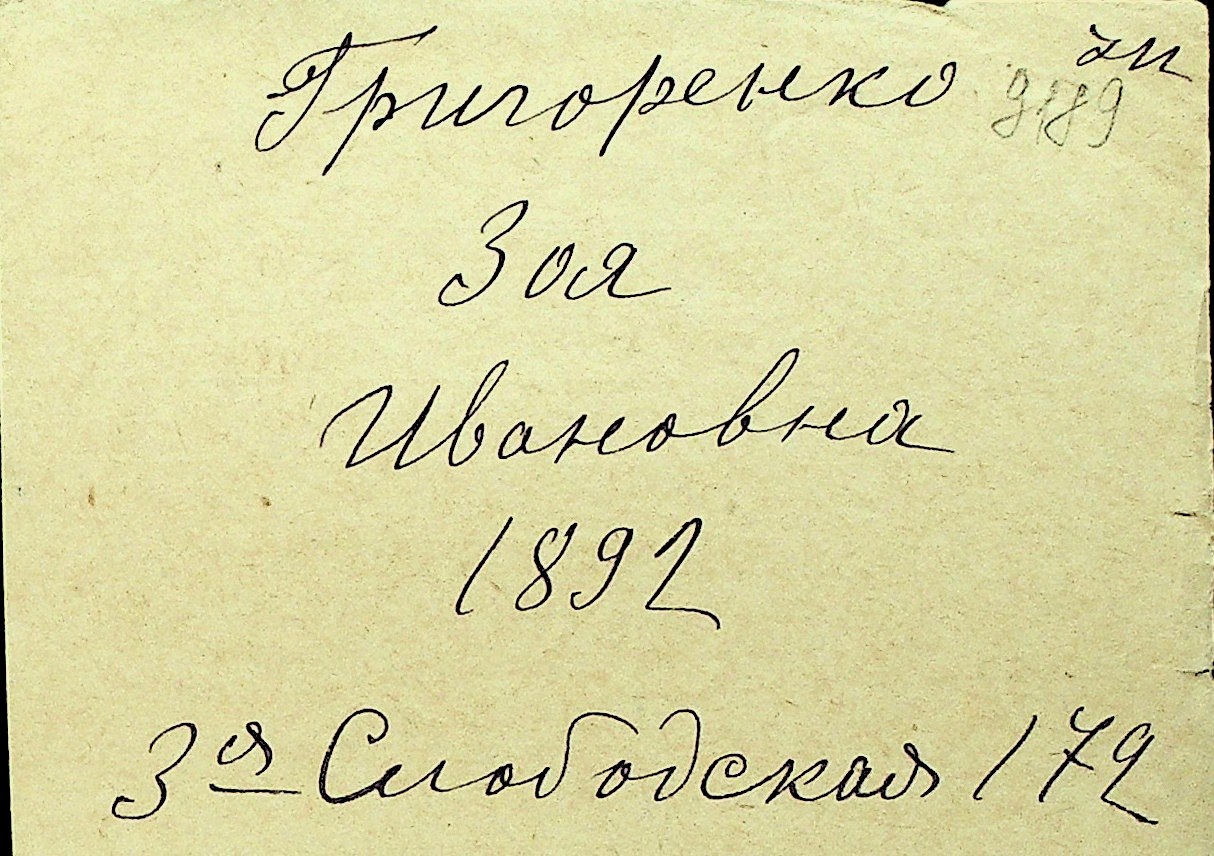 Григоренко
Зоя
Ивановна
1892
3я Слободская 172